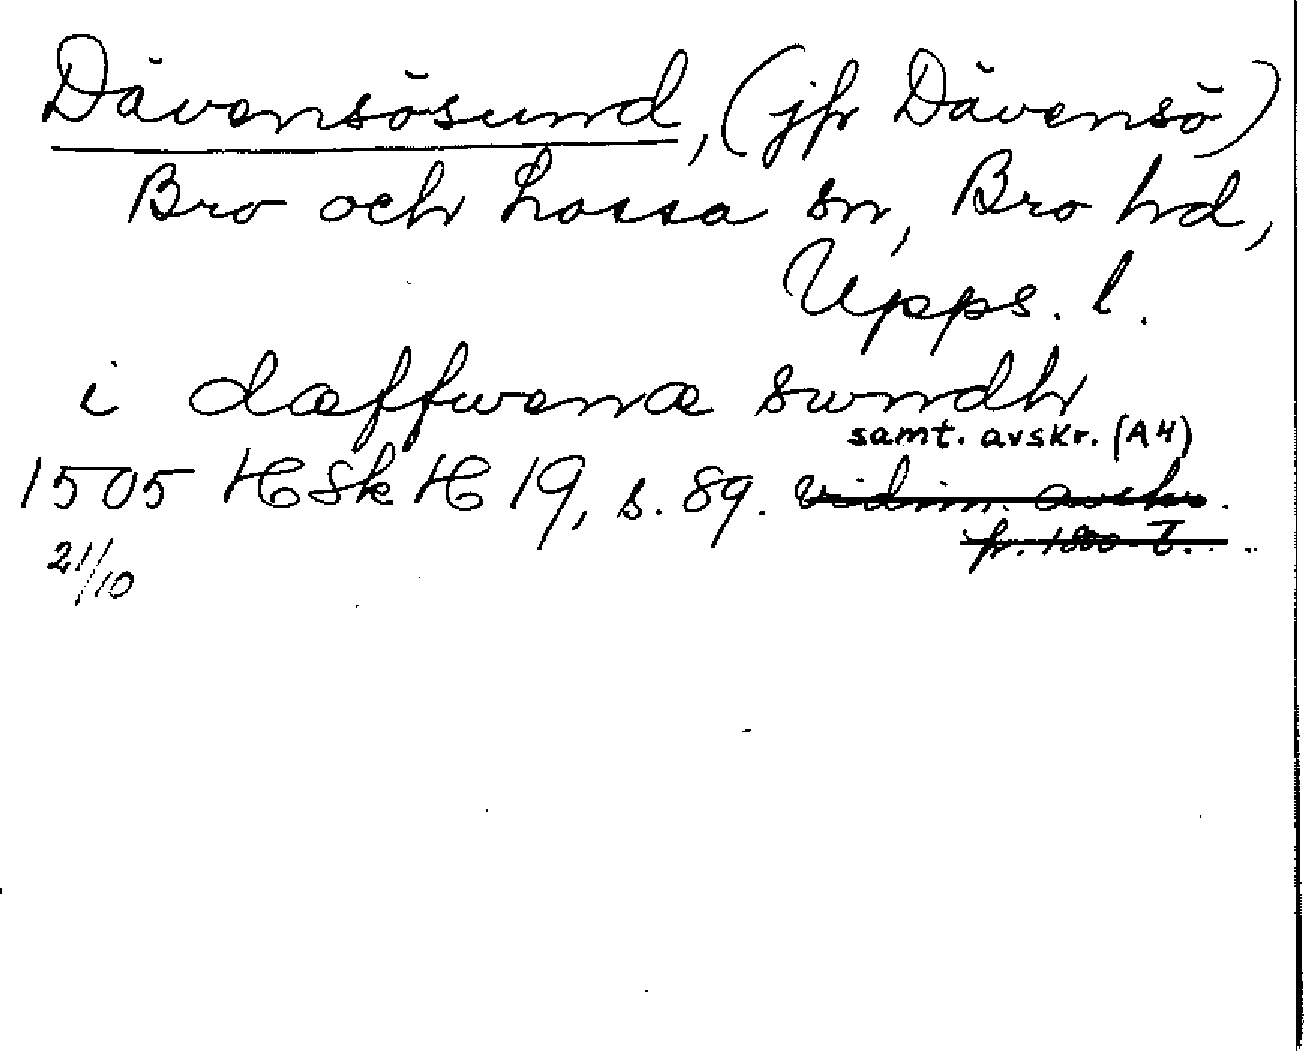 Dävensösund, (jfr Dävensö)
Bro och Lossa sn, Bro hd,
Upps. l.
i dæffwenæ swndh
samt. avskr. (A4)
1505 HSk H 19, s. 89. vidim. avskr.
fr. 1800-T.
21/10